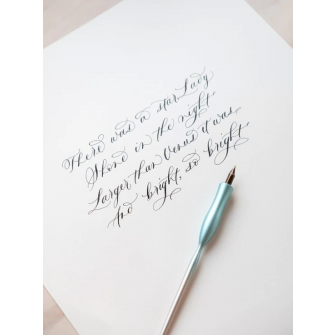 There was a star Lacy
Shone in the night
Larger than Venus it was
And bright, so bright